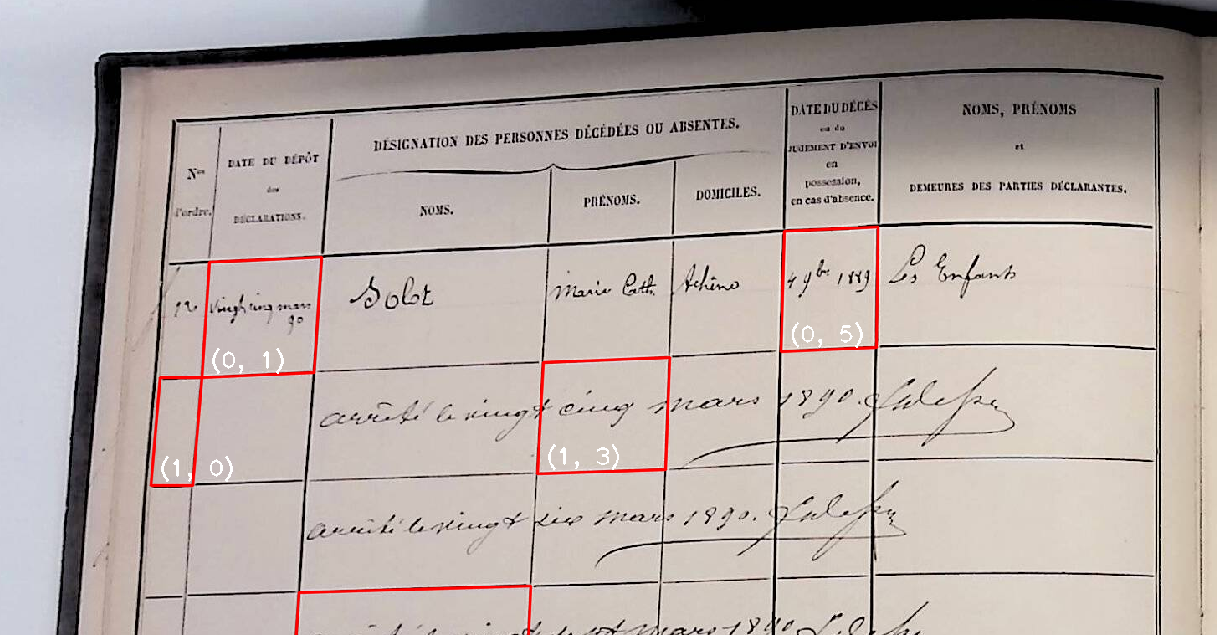 Nos
d'ordre.
DATE DU DÉPÔT
des
DÉCLARATIONS.
DÉSIGNATION DES PERSONNES DÉCÉDÉES OU ABSENTES.
NOMS.
PRÉNOMS.
DOMICILES.
DATE DU DÉCÈS
ou du
JUGEMENT D'ENVOI
en
possession,
en cas d'absence.
NOMS, PRÉNOMS
et
DEMEURES DES PARTIES DÉCLARANTES.
vingt cinq mars
90
Bolot
Marie Cath.
Athêne
4 9bre 1889
Les Enfants
(0, 1)
(0, 5)
arrêté le vingt cinq mars 1890.
(1, 0)
(1, 3)
arrêté le vingt six mars 1890.
mars 1890